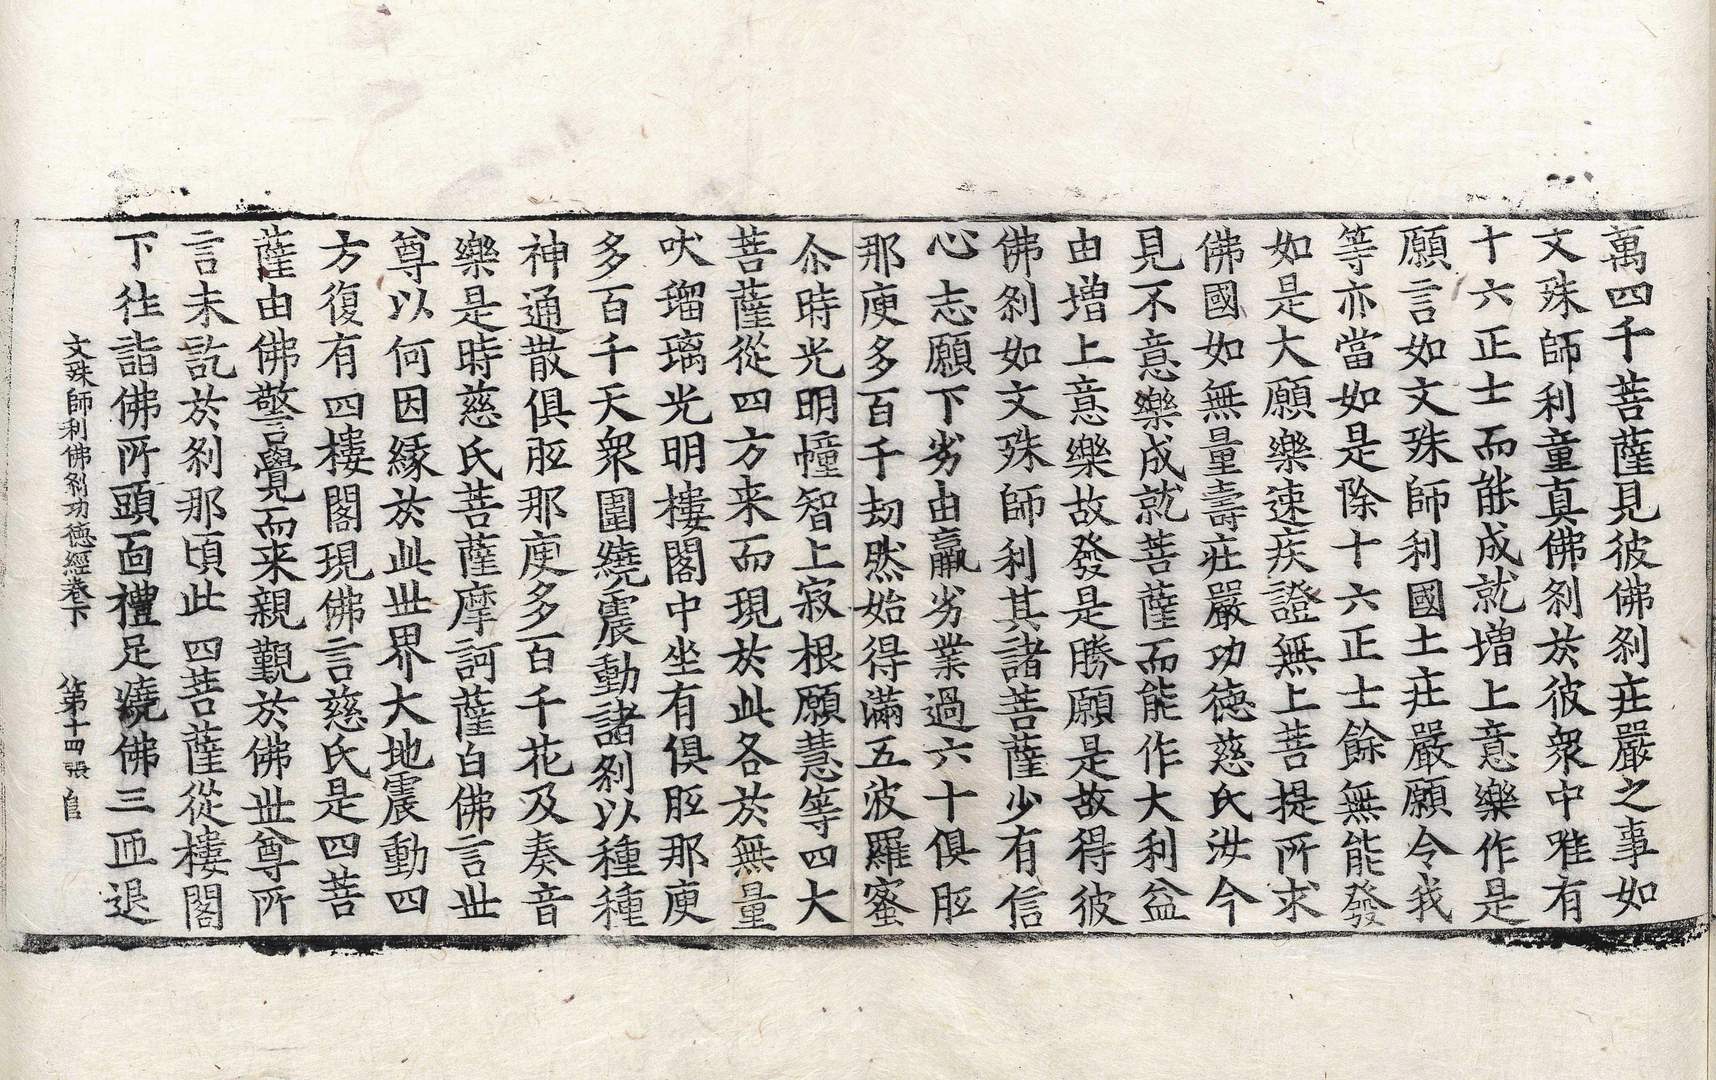 萬四千菩薩見彼佛刹庄嚴之事如
文殊師利童真佛刹於彼衆中唯有
十六正士而能成就增上意樂作是
願言如文殊師利國土庄嚴願令我
等亦當如是除十六正士餘無能發
如是大願樂速疾證無上菩提所求
佛國如無量壽庄嚴功德慈氏汝今
見不意樂成就菩薩而能作大利益
由增上意樂故發是勝願是故得彼
佛刹如文殊師利其諸菩薩少有信
心志願下劣由羸劣業過六十俱胝
那庾多百千劫然始得滿五波羅蜜
尒時光明幢智上寂根願慧等四大
菩薩從四方来而現於此各於無量
吠瑠璃光明樓閣中坐有俱胝那庾
多百千天衆圍繞震動諸刹以種種
神通散俱胝那庾多百千花及奏音
樂是時慈氏菩薩摩訶薩白佛言世
尊以何因緣於此世界大地震動四
方復有四樓閣現佛言慈氏是四菩
薩由佛警覺而来親覲於佛世尊所
言未訖於刹那頃此四菩薩從樓閣
下往詣佛所頭面禮足繞佛三匝退
文殊師利佛刹功德經卷下　第十四張　自